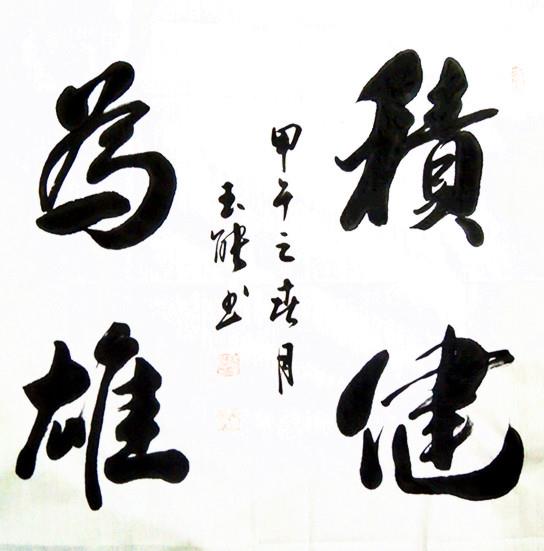 積健
為雄
甲午之春月
玉能书